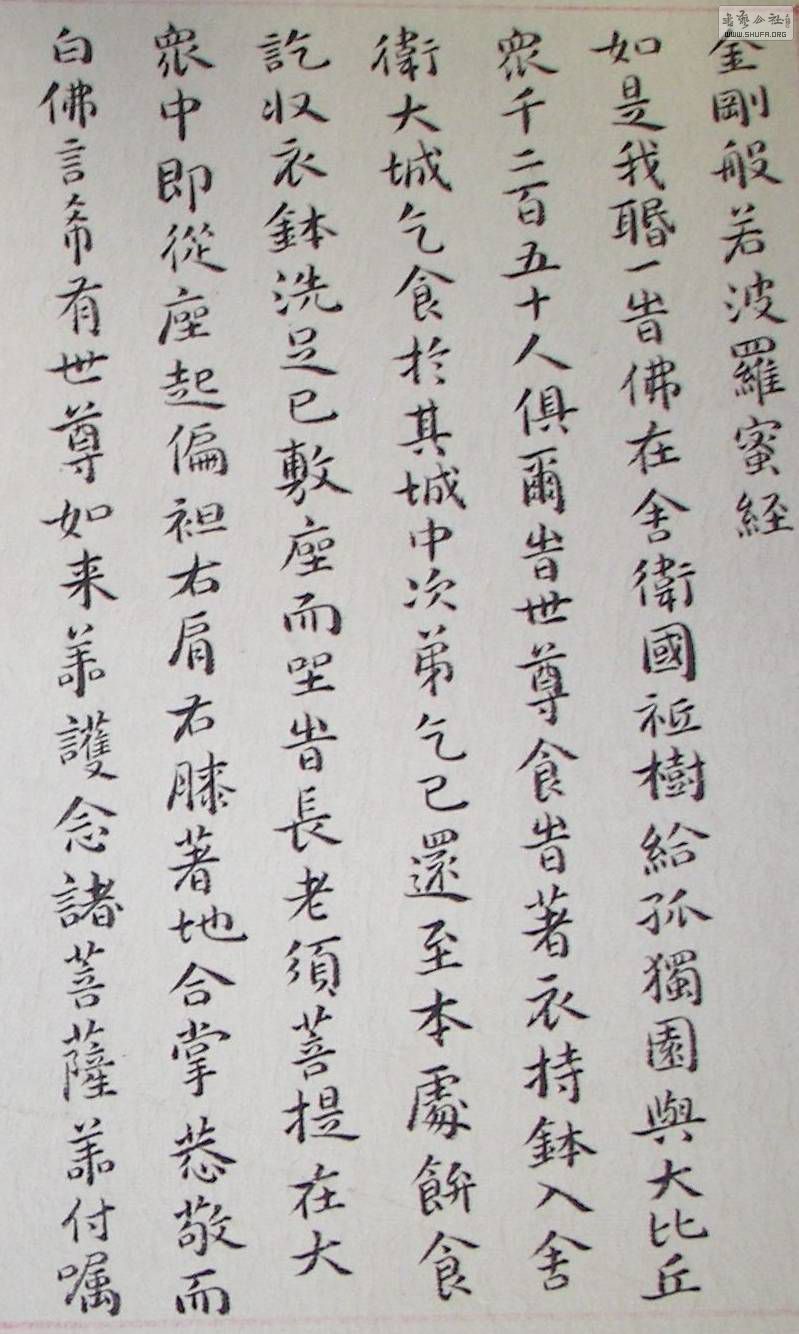 金剛般若波羅蜜経
如是我聞一時佛在舍衛國祇樹給孤獨園與大比丘
眾千二百五十人俱爾時世尊食時著衣持鉢入舍
衛大城乞食於其城中次第乞已還至本處飯食
訖收衣鉢洗足已敷座而坐時長老須菩提在大
眾中即從座起偏袒右肩右膝著地合掌恭敬而
白佛言希有世尊如来善護念諸菩薩善付嘱
書藝公社
WWW.SHUFA.ORG